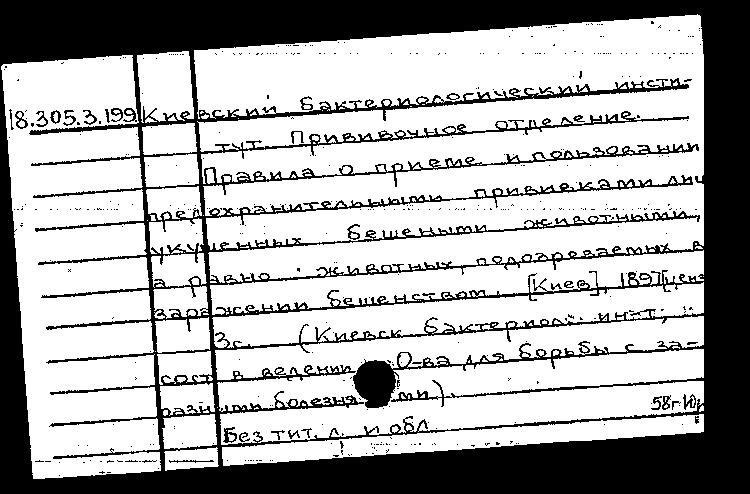 18.305.3.199 Киевский бактериологический инсти-
тут. Прививочное отделение.
Правила о приеме и пользовании
предохранительными прививками лиц
укушенных бешеными животными,
а равно животных, подозреваемых в
заражении бешенством. [Киев], 1897 [ценз
3с. (Киевск бактериол. ин-т,
сост в ведении О-ва для борьбы с за-
разными болезнями).
58г
Без тит. л. и обл